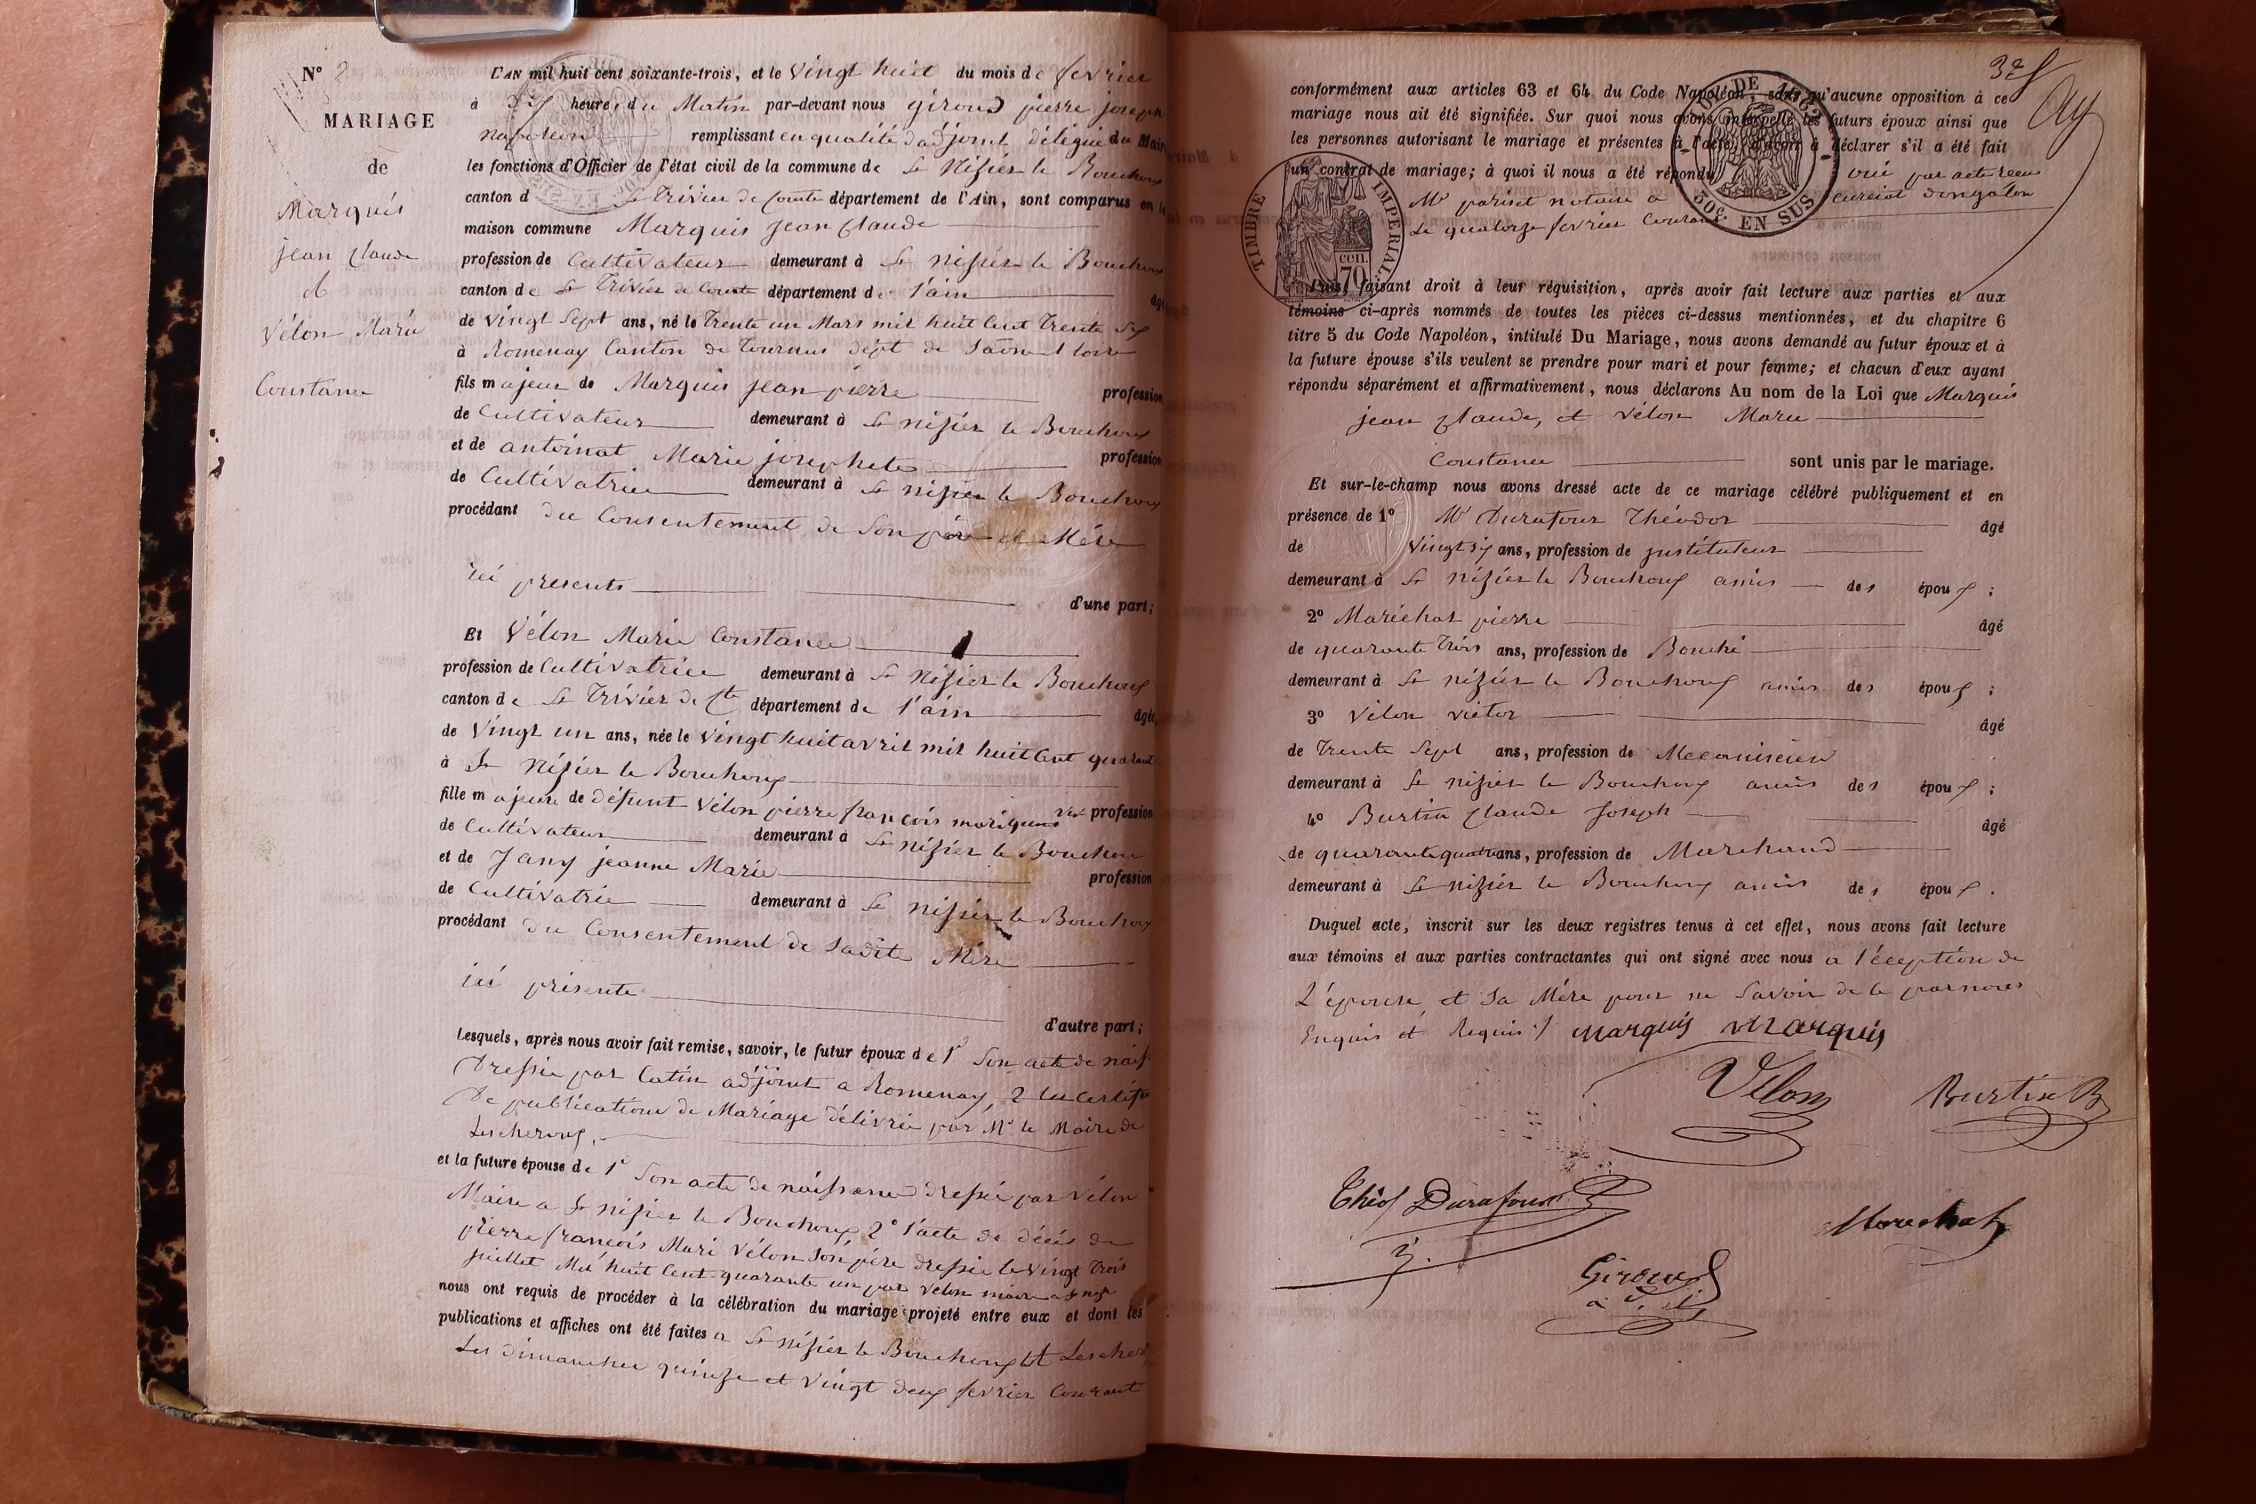 N° 2
MARIAGE
de
Marquis
jean Claude
et
Vélon Marie
Constance
L'AN mil huit cent soixante-trois, et le vingt huit du mois de fevrier
à heure, du Matin par-devant nous giroud pierre joseph
napoléon remplissant en qualité d'adjoint délégué du Maire
les fonctions d'Officier de l'état civil de la commune de St Nizier le Bouchoux
canton d St Trivier de Courtes département de l'Ain, sont comparus en la
maison commune Marquis jean Claude
profession de Cultivateur demeurant à St nizier le Bouchoux
canton de St Trivier de Courtes département de l'ain âgé
de vingt Sept ans, né le trente un Mars mil huit Cent trente six
à Romenay Canton de tournus dépt de Saône et loire
fils majeur de Marquis jean pierre profession
de Cultivateur demeurant à St nizier le Bouchoux
et de antoinat Marie josephete profession
de Cultivatrice demeurant à St nizier le Bouchoux
procédant du Consentement de Son père et Mère
ici presents d'une part;
Et Vélon Marie Constance
profession de Cultivatrice demeurant à St Nizier le Bouchoux
canton de St Trivier de Ctes département de l'ain âgée
de vingt un ans, née le vingt huit avril mil huit Cent quarante
à St Nizier le Bouchoux
fille majeure de défunt Vélon pierre françois marie vivt profession
de Cultivateur demeurant à St nizier le Bouchoux
et de Jany jeanne Marie profession
de Cultivatrice demeurant à St nizier le Bouchoux
procédant du Consentement de Sadite Mère
ici présente
d'autre part;
Lesquels, après nous avoir fait remise, savoir, le futur époux de 1° Son acte de naiss
Dressée par Catin adjoint a Romenay, 2 les certifs
De publications de Mariage délivrée par Mr le Maire de
Lescheroux,
et la future épouse de 1° Son acte de naissance dressée par Vélon
Maire a St nizier le Bouchoux, 2° l'acte de décès de
pierre françois Marie Vélon Son père dressée le vingt trois
juillet Mil huit Cent quarante un par Velon maire a St nizr
nous ont requis de procéder à la célébration du mariage projeté entre eux et dont les
publications et affiches ont été faites a St nizier le Bouchoux et Lescheroux
Les dimanches quinze et vingt deux fevrier Courant
conformément aux articles 63 et 64 du Code Napoléon, sans qu'aucune opposition à ce
mariage nous ait été signifiée. Sur quoi nous avons interpellé les futurs époux ainsi que
les personnes autorisant le mariage et présentes à l'acte, d'avoir à déclarer s'il a été fait
un contrat de mariage; à quoi il nous a été répondu oui par acte recu
Mr pariset notaire a
Le quatorze fevrier Courant
DE 1862
30c. EN SUS
TIMBRE IMPERIAL
cen.
70
Puis, faisant droit à leur réquisition, après avoir fait lecture aux parties et aux
témoins ci-après nommés de toutes les pièces ci-dessus mentionnées, et du chapitre 6
titre 5 du Code Napoléon, intitulé Du Mariage, nous avons demandé au futur époux et à
la future épouse s'ils veulent se prendre pour mari et pour femme; et chacun d'eux ayant
répondu séparément et affirmativement, nous déclarons Au nom de la Loi que Marquis
jean Claude, et Vélon Marie
Constance sont unis par le mariage.
Et sur-le-champ nous avons dressé acte de ce mariage célébré publiquement et en
présence de 1° Mr Durafour Théodor âgé
de vingt six ans, profession de instituteur
demeurant à St nizier le Bouchoux amis des époux;
2° Maréchat pierre âgé
de quarante Trois ans, profession de Bouché
demeurant à St nizier le Bouchoux amis des époux;
3° Vélon victor âgé
de Trente Sept ans, profession de Mecanicien
demeurant à St nizier le Bouchoux amis des époux;
4° Burtin Claude Joseph âgé
de quarante quatre ans, profession de Marchand
demeurant à St nizier le Bouchoux amis des époux.
Duquel acte, inscrit sur les deux registres tenus à cet effet, nous avons fait lecture
aux témoins et aux parties contractantes qui ont signé avec nous a l'éception de
L'épouse, et Sa Mère pour ne Savoir de le par nous
Enquis et Requis ./ marquis marquis
Vélon
Burtin
Théod Durafour
Marechat
Giroud